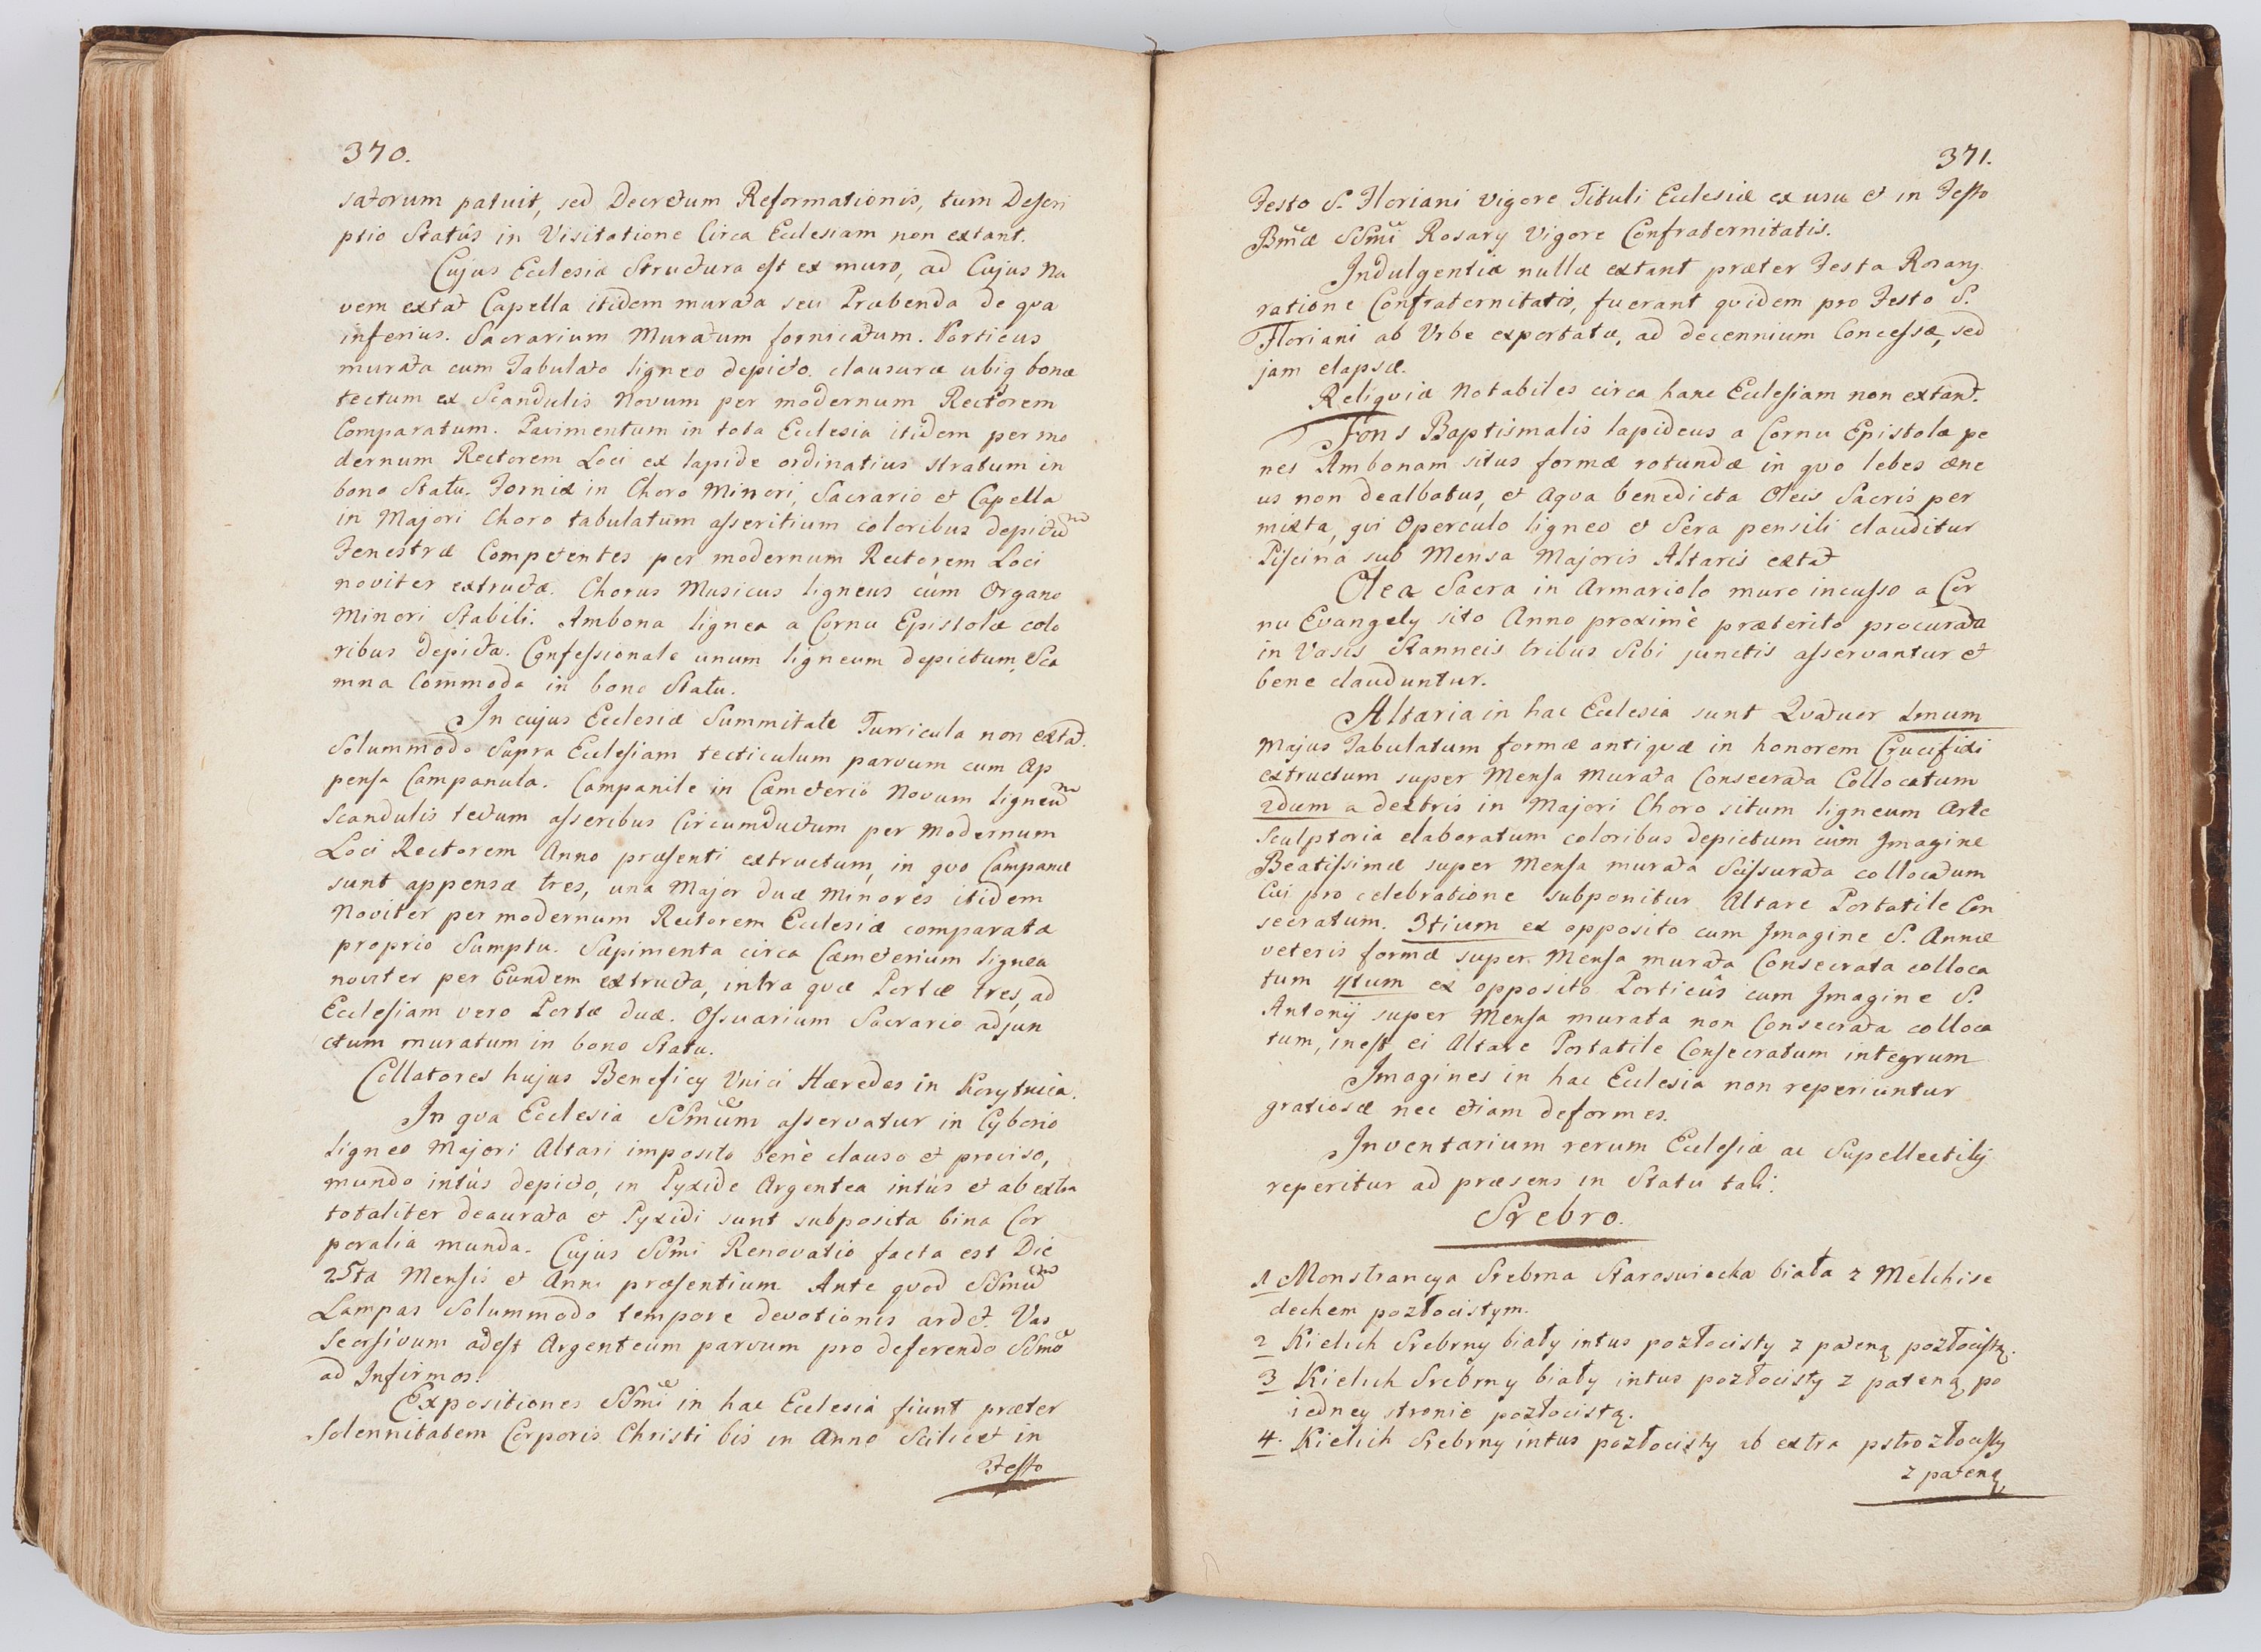 370.
satorum patuit, sed Decretum Reformationis, tum Descri
ptio Statûs in Visitatione Circa Ecclesiam non extant.
Cujus Ecclesiæ Structura est ex muro, ad Cujus Na
vem extat Capella itidem murata seu Præbenda de qva
inferius. Sacrarium Muratum fornicatum. Porticus
murata cum Tabulato ligneo depicto. clausuræ ubiq bonæ
tectum ex Scandulis Novum per modernum Rectorem
Comparatum. Pavimentum in tota Ecclesia itidem per mo
dernum Rectorem Loci ex lapide ordinatius stratum in
bono Statu. Fornix in Choro Minori, Sacrario et Capella
in Majori Choro tabulatum asseritium coloribus depictũ
Fenestræ Competentes per modernum Rectorem Loci
noviter extructæ. Chorus Musicus ligneus cùm Organo
Minori Stabili. Ambona lignea a Cornu Epistolæ colo
ribus depicta. Confessionale unum ligneum depictum, Sca
mna Commoda in bono Statu.
In cujus Ecclesiæ Summitate Turricula non extat.
Solummodo Supra Ecclesiam tecticulum parvum cum Ap
pensa Campanula. Campanile in Cæmeterio Novum ligneũ
Scandulis tectum asseribus Circumductum per Modernum
Loci Rectorem Anno præsenti extructum, in qvo Campanæ
sunt appensæ tres, una Major duæ Minores itidem
Noviter per modernum Rectorem Ecclesiæ comparatæ
proprio Sumptu. Sæpimenta circa Cæmeterium lignea
noviter per Eundem extructa, intra qvæ Portæ tres, ad
Ecclesiam vero Portæ duæ. Ossuarium Sacrario adjun
ctum muratum in bono Statu.
Collatores hujus Beneficy Unici Hæredes in Korytnica.
In qva Ecclesia SSmum asservatur in Cyborio
ligneo Majori Altari imposito benè clauso et proviso,
mundo intùs depicto, in Pyxide Argentea intùs et ab extra
totaliter deaurata et Pyxidi sunt subposita bina Cor
poralia munda. Cujus SSmi Renovatio facta est Die
25ta Mensis et Anni præsentium. Ante qvod SSmũ
Lampas Solummodo tempore devotionis ardet. Vas
Secrsivum adest Argenteum parvum pro deferendo SSmo
ad Infirmos.
Expositiones SSmi in hac Ecclesia fiunt præter
Solennitatem Corporis Christi bis in Anno Scilicet in
Festo
371.
Festo S. Floriani vigore Tituli Ecclesiæ ex usu et in Festo
Bmæ SSmi Rosary Vigore Confraternitatis.
Indulgentiæ nullæ extant præter Festa Rosary
ratione Confraternitatis, fuerant qvidem pro Festo S.
Floriani ab Urbe exportatæ, ad decennium Concessæ, sed
jam elapsæ.
Reliqviæ Notabiles circa hanc Ecclesiam non extant.
Fons Baptismalis lapideus a Cornu Epistolæ pe
nes Ambonam situs formæ rotundæ in qvo lebes æne
us non dealbatus, et Aqva benedicta Oleis Sacris per
mixta, qvi Operculo ligneo et Sera pensili clauditur
Piscina sub Mensa Majoris Altaris extat
Olea Sacra in Armariolo muro incusso a Cor
nu Evangely sito Anno proximè præterito procurata
in Vasis Stanneis tribus Sibi junctis asservantur et
bene clauduntur.
Altaria in hac Ecclesia sunt Qvatuor 1mum
Majus Tabulatum formæ antiqvæ in honorem Crucifixi
extructum super Mensa Murata Consecrata Collocatum
2dum a dextris in Majori Choro situm ligneum Arte
Sculptoria elaboratum coloribus depictum cùm Imagine
Beatissimæ super Mensa murata Scissurata collocatum
Cui pro celebratione subponitur Altare Portatile Con
secratum. 3tium ex opposito cum Imagine S. Annæ
veteris formæ super Mensa murata Consecrata colloca
tum 4tum ex opposito Porticûs cum Imagine S.
Antonij super Mensa murata non Consecrata colloca
tum, inest ei Altare Portatile Consecratum integrum
Imagines in hac Ecclesia non reperiuntur
gratiosæ nec etiam deformes.
Inventarium rerum Ecclesiæ ac Supellectilij
reperitur ad præsens in Statu tali.
Srebro.
1 Monstrancya Srebrna Staroswiecka biała z Melchise
dechem pozłocistym.
2 Kielich Srebrny biały intus pozłocisty z pateną pozłocistą.
3 Kielich Srebrny biały intus pozłocisty z pateną po
iedney stronie pozłocistą.
4. Kielich Srebrny intus pozłocisty ab extra pstrozłocisty
z pateną